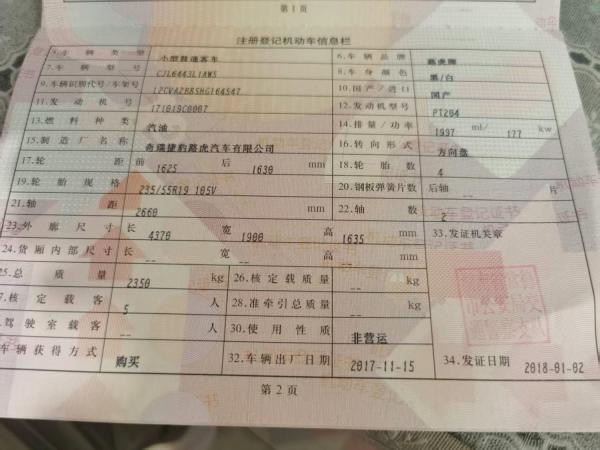 第1页
注册登记机动车信息栏
5.车辆类型 小型普通客车 6.车辆品牌 路虎牌
7.车辆型号 CJL6443L1AW5 8.车身颜色 黑/白
9.车辆识别代号/车架号 L2CVA2B8SHG164547 10.国产/进口 国产
11.发动机号 171019C0007 12.发动机型号 PT204
13.燃料种类 汽油 14.排量/功率 1997 ml/ 177 kw
15.制造厂名称 奇瑞捷豹路虎汽车有限公司 16.转向形式 方向盘
17.轮距 前 1625 后 1630 mm 18.轮胎数 4
19.轮胎规格 235/55R19 105V 20.钢板弹簧片数 后轴 -- 片
21.轴距 2660 mm 22.轴数 2
23.外廓尺寸 长 4370 宽 1900 高 1635 mm 33.发证机关章
24.货厢内部尺寸 长 -- 宽 -- 高 -- mm
25.总质量 2350 kg 26.核定载质量 -- kg
7.核定载客 5 人 28.准牵引总质量 -- kg
.驾驶室载客 -- 人 30.使用性质 非营运
车辆获得方式 购买 32.车辆出厂日期 2017-11-15 34.发证日期 2018-01-02
第2页